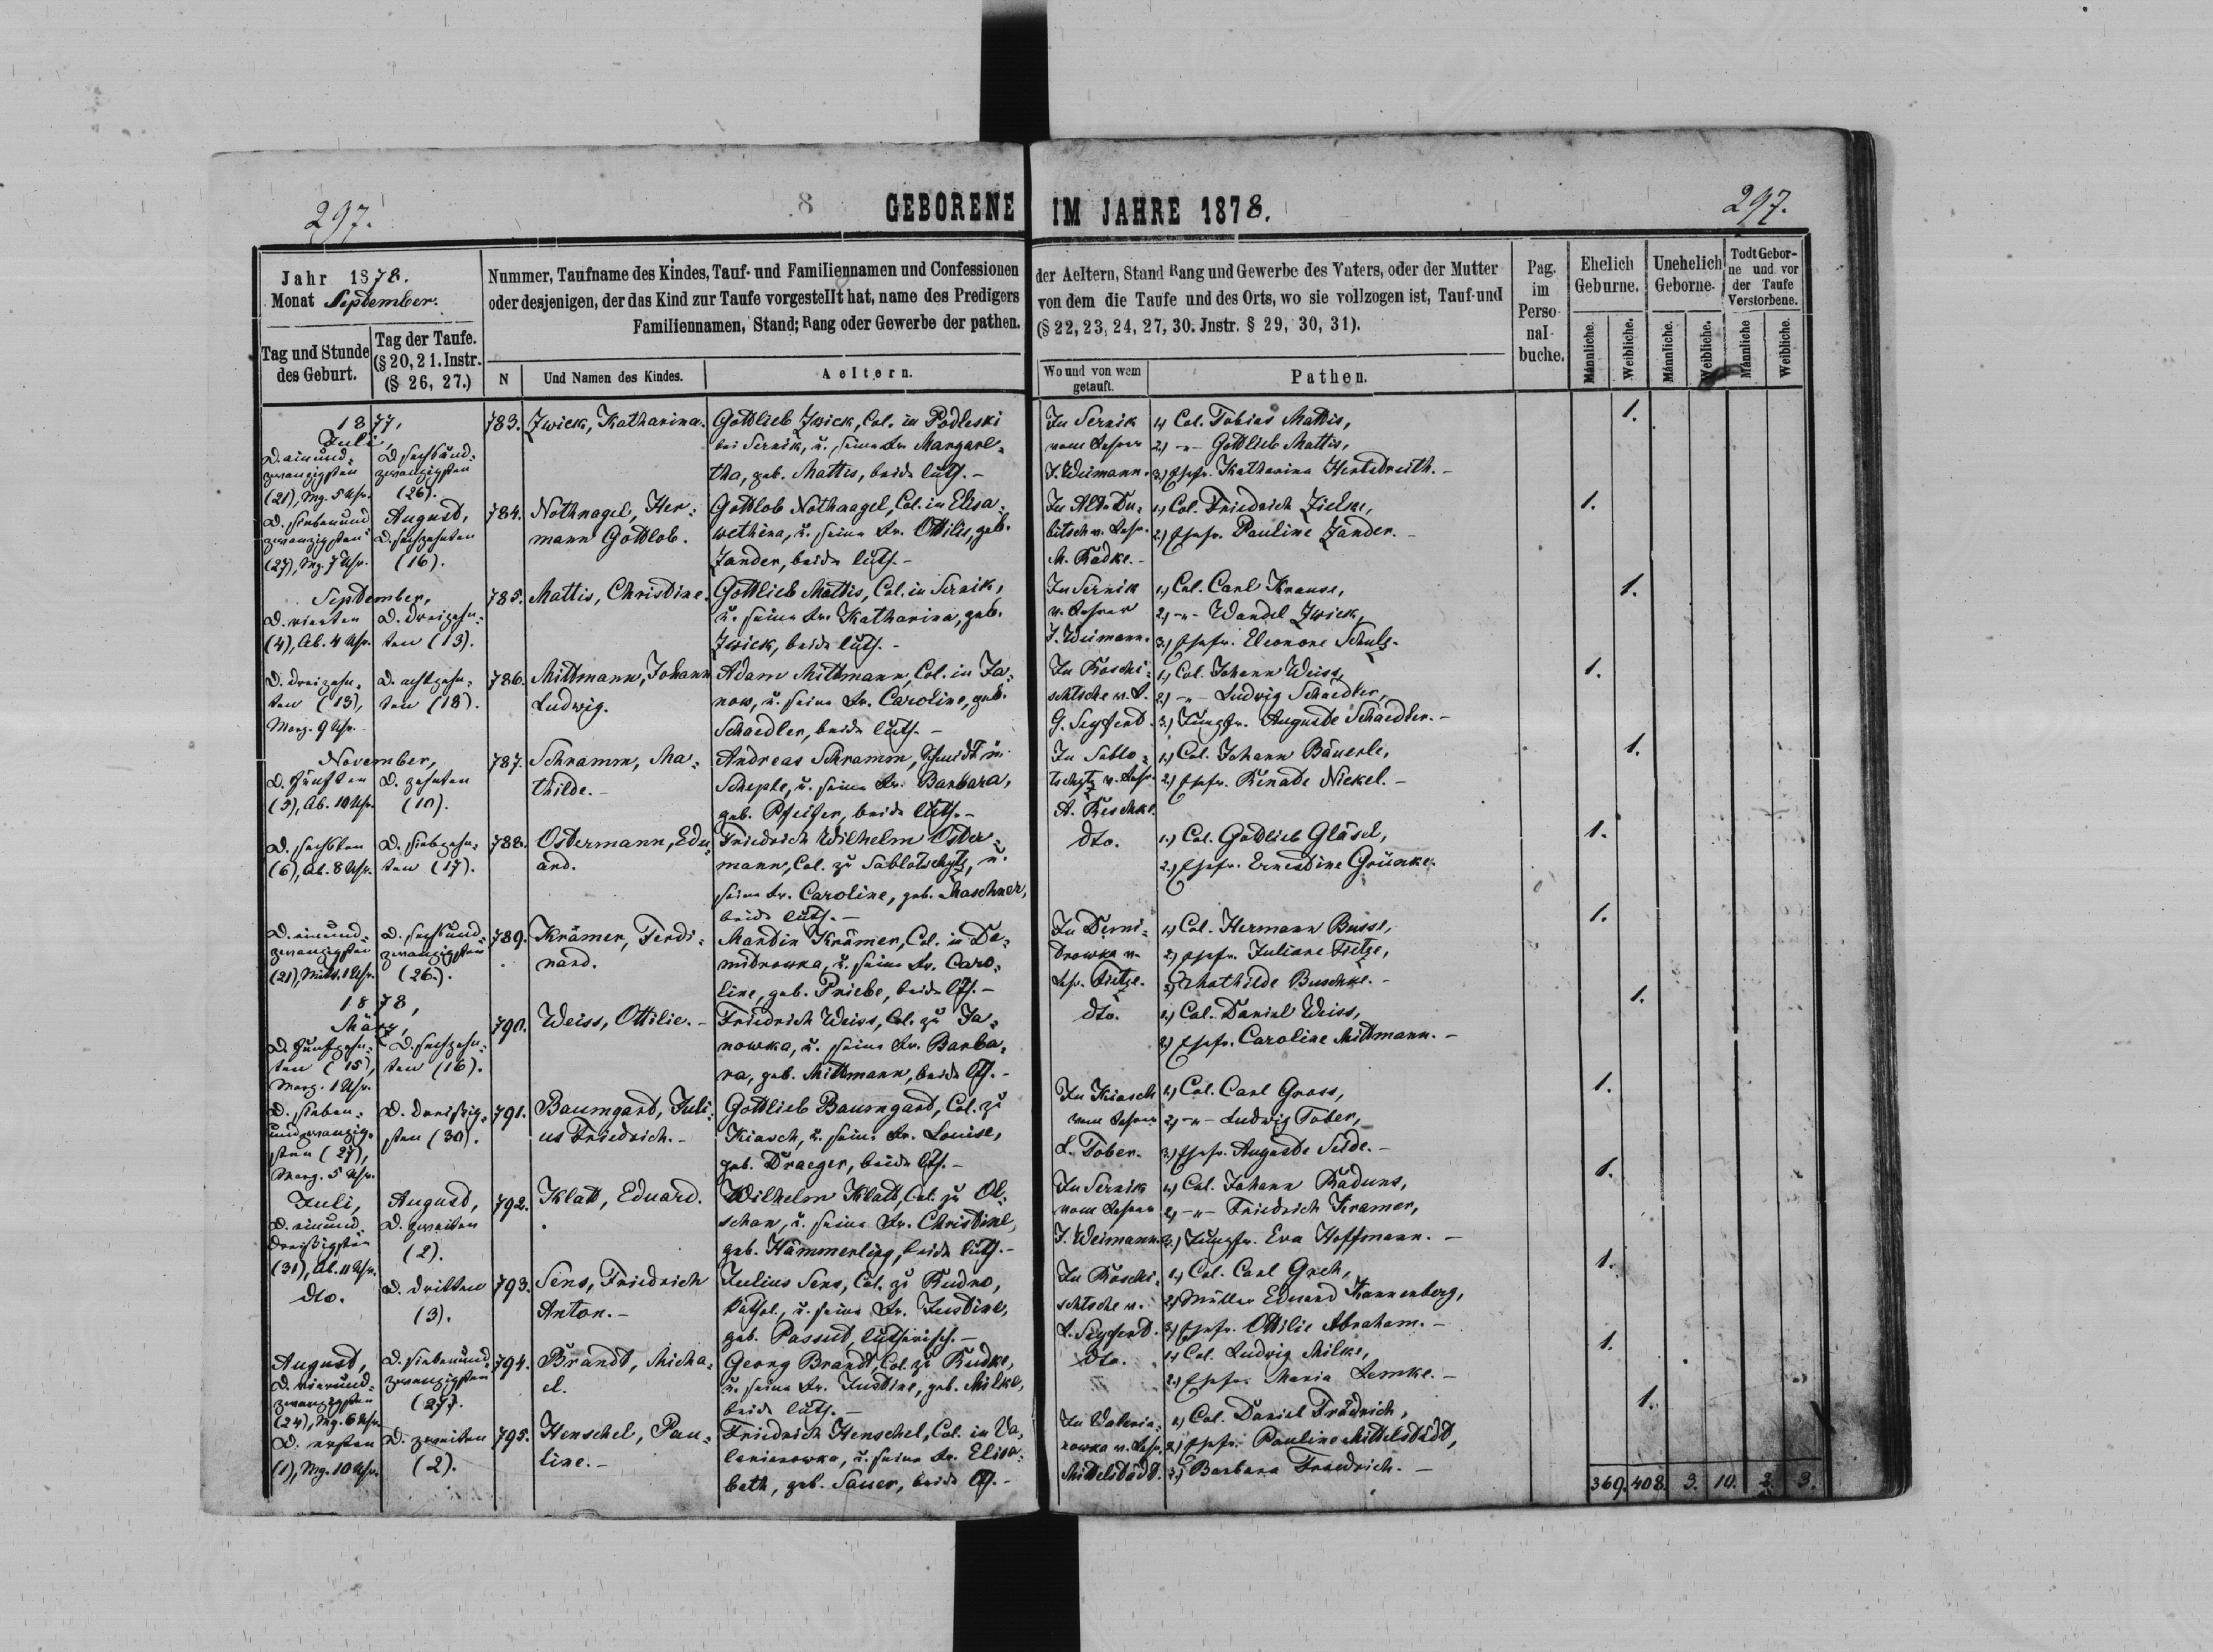 297.
8
GEBORENE IM JAHRE 1878.
297.
Jahr 1878.
Monat September.
Tag und Stunde des Geburt.
Tag der Taufe.
(§ 20, 21. Instr.
(§ 26, 27.)
Nummer, Taufname des Kindes, Tauf- und Familiennamen und Confessionen
oder desjenigen, der das Kind zur Taufe vorgestellt hat, name des Predigers
Familiennamen, Stand; Rang oder Gewerbe der pathen.
N
Und Namen des Kindes.
Aeltern.
der Aeltern, Stand Rang und Gewerbe des Vaters, oder der Mutter
von dem die Taufe und des Orts, wo sie vollzogen ist, Tauf-und
(§ 22, 23, 24, 27, 30. Jnstr. § 29, 30, 31).
Wo und von wem
getauft.
Pathen.
Pag.
im
Perso-
nal-
buche.
Ehelich
Geburne.
Unehelich
Geborne.
Todt Gebor-
ne und vor
der Taufe
Verstorbene.
Männliche.
Weibliche.
Männliche.
Weibliche.
Männliche
Weibliche.
1877,
Juli,
D. einund-
zwanzigsten
(21), Mg. 5 Uhr.
D. sechsund-
zwanzigsten
(26).
783.
Zwick, Katharina.
Gottlieb Zwick, Col. in Podleski
bei Sernik, u. seine Fr. Margare-
tha, geb. Mattis, beide luth. -
In Sernik
vom Lehrer
J. Weimann.
1.) Col. Tobias Mattis,
2.) -"- Gottlieb Mattis,
3.) Ehefr. Katharina Hertedreith. -
1.
D. siebenund
zwanzigsten
(27), Mg. 7 Uhr.
August,
D. sechzehnten
(16).
784.
Nothnagel, Her-
mann Gottlob.
Gottlob Nothnagel, Col. in Elisa-
wethina, u. seine Fr. Ottilie, geb.
Zander, beide luth. -
In Alt-Du-
bitsch v. Lehr.
M. Radke. -
1.) Col. Friedrich Zielke,
2.) Ehefr. Pauline Zander. -
1.
September,
D. vierten
(4), Ab. 4 Uhr.
D. dreizehn-
ten (13).
785.
Mattis, Christine.
Gottlieb Mattis, Col. in Sernik,
u. seine Fr. Katharina, geb.
Zwick, beide luth. -
In Sernik
v. Lehrer
J. Weimann.
1.) Col. Carl Krause,
2.) -"- Wandel Zwick,
3.) Ehefr. Eleonore Schulz.
1.
D. dreizehn-
ten (13),
Morg. 9 Uhr. -
D. achtzehn-
ten (18).
786.
Mittmann, Johann
Ludwig.
Adam Mittmann, Col. in Ja-
now, u. seine Fr. Caroline, geb.
Schaedler, beide luth. -
In Koschi-
schtsche v. L.
G. Seyferd.
1.) Col. Johann Weiss,
2.) -"- Ludwig Schaedler,
3.) Jungfr. Auguste Schaedler. -
1.
November,
D. fünften
(5), Ab. 10 Uhr.
D. zehnten
(10).
787.
Schramm, Ma-
thilde. -
Andreas Schramm, Schmidt in
Schepte, u. seine Fr. Barbara,
geb. Pfeifer, beide luth. -
In Sablo-
tschytz v. Lehr.
A. Reschke.
1.) Col. Johann Bäuerle,
2.) Ehefr. Renate Nickel. -
1.
D. sechsten
(6), Ab. 8 Uhr.
D. siebzehn-
ten (17).
788.
Ostermann, Edu-
ard.
Friedrich Wilhelm Oster-
mann, Col. zu Sablotschytz, u.
seine Fr. Caroline, geb. Maschner,
beide luth. -
dto.
1.) Col. Gottlieb Gläsel,
2.) Ehefr. Ernestine Grünke.
1.
D. einund-
zwanzigsten
(21), Mitt. 1 Uhr.
D. sechsund-
zwanzigsten
(26).
789.
Krämer, Ferdi-
nand.
Martin Krämer, Col. in De-
midrowka, u. seine Fr. Caro-
line, geb. Priebe, beide lth. -
In Demi-
drowka v.
Lehr. Tietze.
1.) Col. Hermann Busse,
2.) Ehefr. Juliane Tietze,
3.) Mathilde Buschke. -
1.
1878,
März,
D. fünfzehn-
ten (15),
Morg. 1 Uhr.
D. sechzehn-
ten (16).
790.
Weiss, Ottilie. -
Friedrich Weiss, Col. zu Ja-
nowka, u. seine Fr. Barba-
ra, geb. Mittmann, beide lth. -
dto.
1.) Col. Daniel Weiss,
2.) Ehefr. Caroline Mittmann. -
1.
D. sieben-
undzwanzig-
sten (27),
Morg. 5 Uhr.
D. dreißig-
sten (30).
791.
Baumgard, Juli-
us Friedrich. -
Gottlieb Baumgard, Col. zu
Kiasch, u. seine Fr. Louise,
geb. Draeger, beide lth. -
In Kiasch
vom Lehrer
L. Tober.
1.) Col. Carl Gross,
2.) -"- Ludwig Tober,
3.) Ehefr. Auguste Seide. -
1.
Juli,
D. einund-
dreißigsten
(31), Ab. 11 Uhr.
August,
D. zweiten
(2).
792.
Klatt, Eduard.
Wilhelm Klatt, Col. zu Ol-
schan, u. seine Fr. Christine,
geb. Hämmerling, beide luth. -
In Sernik
vom Lehrer
J. Weimann.
1.) Col. Johann Raduns,
2.) -"- Friedrich Kramer,
3.) Jungfr. Eva Hoffmann. -
1.
dto.
D. dritten
(3).
793.
Sens, Friedrich
Anton. -
Julius Sens, Col. zu Rudno,
kathol., u. seine Fr. Justine,
geb. Passut, lutherisch. -
In Koschi-
schtsche v.
L. Seyferd.
1.) Col. Carl Greh,
2.) Müller Eduard Kannenberg,
3.) Ehefr. Ottilie Abraham. -
1.
August,
D. vierund-
zwanzigsten
(24), Mg. 6 Uhr.
D. siebenund-
zwanzigsten
(27).
794.
Brandt, Micha-
el.
Georg Brandt, Col. zu Rudke,
u. seine Fr. Justine, geb. Milke,
beide luth. -
dto.
1.) Col. Ludwig Milke,
2.) Ehefr. Maria Lemke. -
1.
D. ersten
(1), Mg. 10 Uhr.
D. zweiten
(2).
795.
Henschel, Pau-
line. -
Friedrich Henschel, Col. in Va-
lerianowka, u. seine Fr. Elisa-
beth, geb. Sauer, beide lth. -
In Waleria-
nowka v. Lehr.
Mittelstädt.
1.) Col. Daniel Frädrich,
2.) Ehefr. Pauline Mittelstädt,
3.) Barbara Fraedrich. -
1.
369. 408. 3. 10. 2. 3.